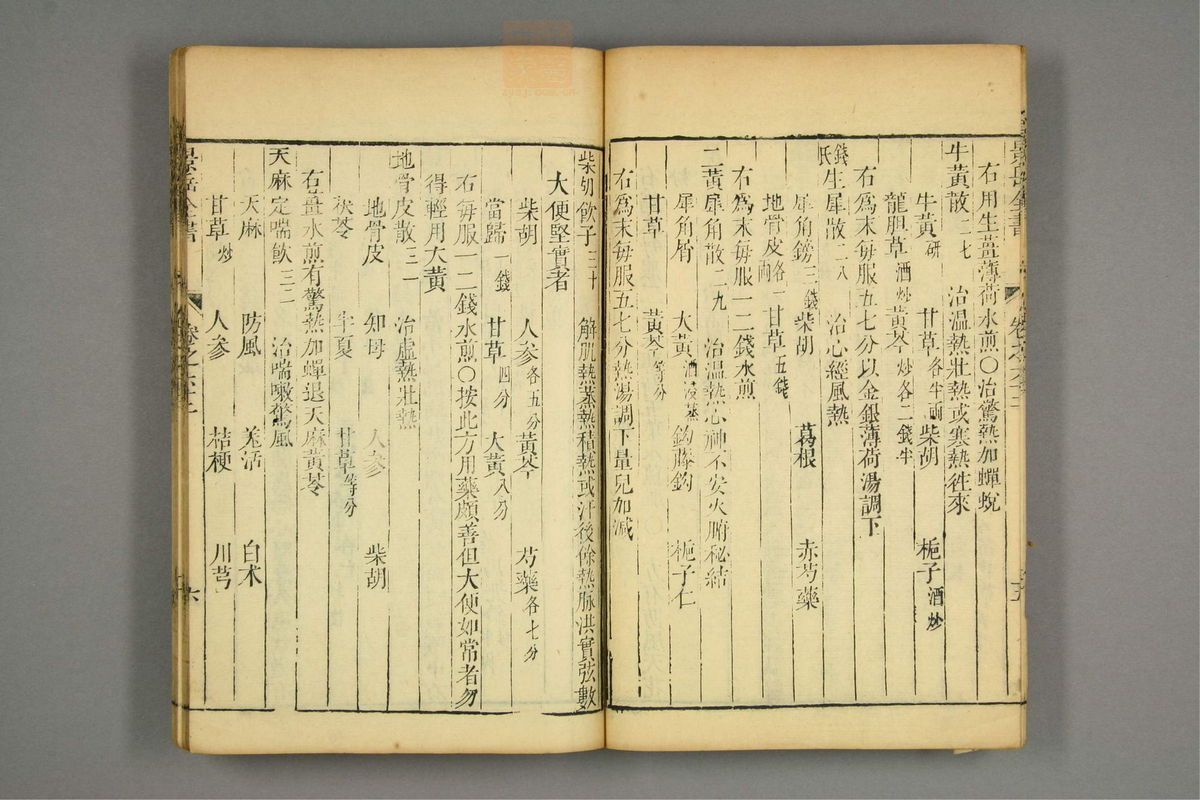 右用生薑薄荷水煎○治驚熱加蟬蛻
牛黃散二七 治温熱壯熱或寒熱徃來
牛黃研 甘草各半兩 柴胡 梔子酒炒
龍胆草酒炒 黃芩炒各二錢半
右為末每服五七分以金銀薄荷湯調下
錢氏生犀散二八 治心經風熱
犀角鎊三錢 柴胡 葛根 赤芍藥
地骨皮各一兩 甘草五錢
右為末每服一二錢水煎
二黃犀角散二九 治温熱心神不安火腑秘結
犀角屑 大黃酒浸蒸 鈎藤鈎 梔子仁
甘草 黃芩等分
右爲末每服五七分熱湯調下量兒加減
柴胡飲子三十 解肌熱蒸熱積熱或汗後餘熱脉洪實弦數
大便堅實者
柴胡 人參各五分 黃芩 芍藥各七分
當歸一錢 甘草四分 大黃八分
右每服一二錢水煎○按此方用藥頗善但大便如常者勿
得輕用大黃
地骨皮散三一 治虛熱壯熱
地骨皮 知母 人參 柴胡
茯苓 半夏 甘草等分
右薑水煎有驚熱加蟬退天麻黃芩
天麻定喘飲三二 治喘嗽驚風
天麻 防風 羗活 白术
甘草炒 人參 桔梗 川芎
景岳全書 卷之六十二 六